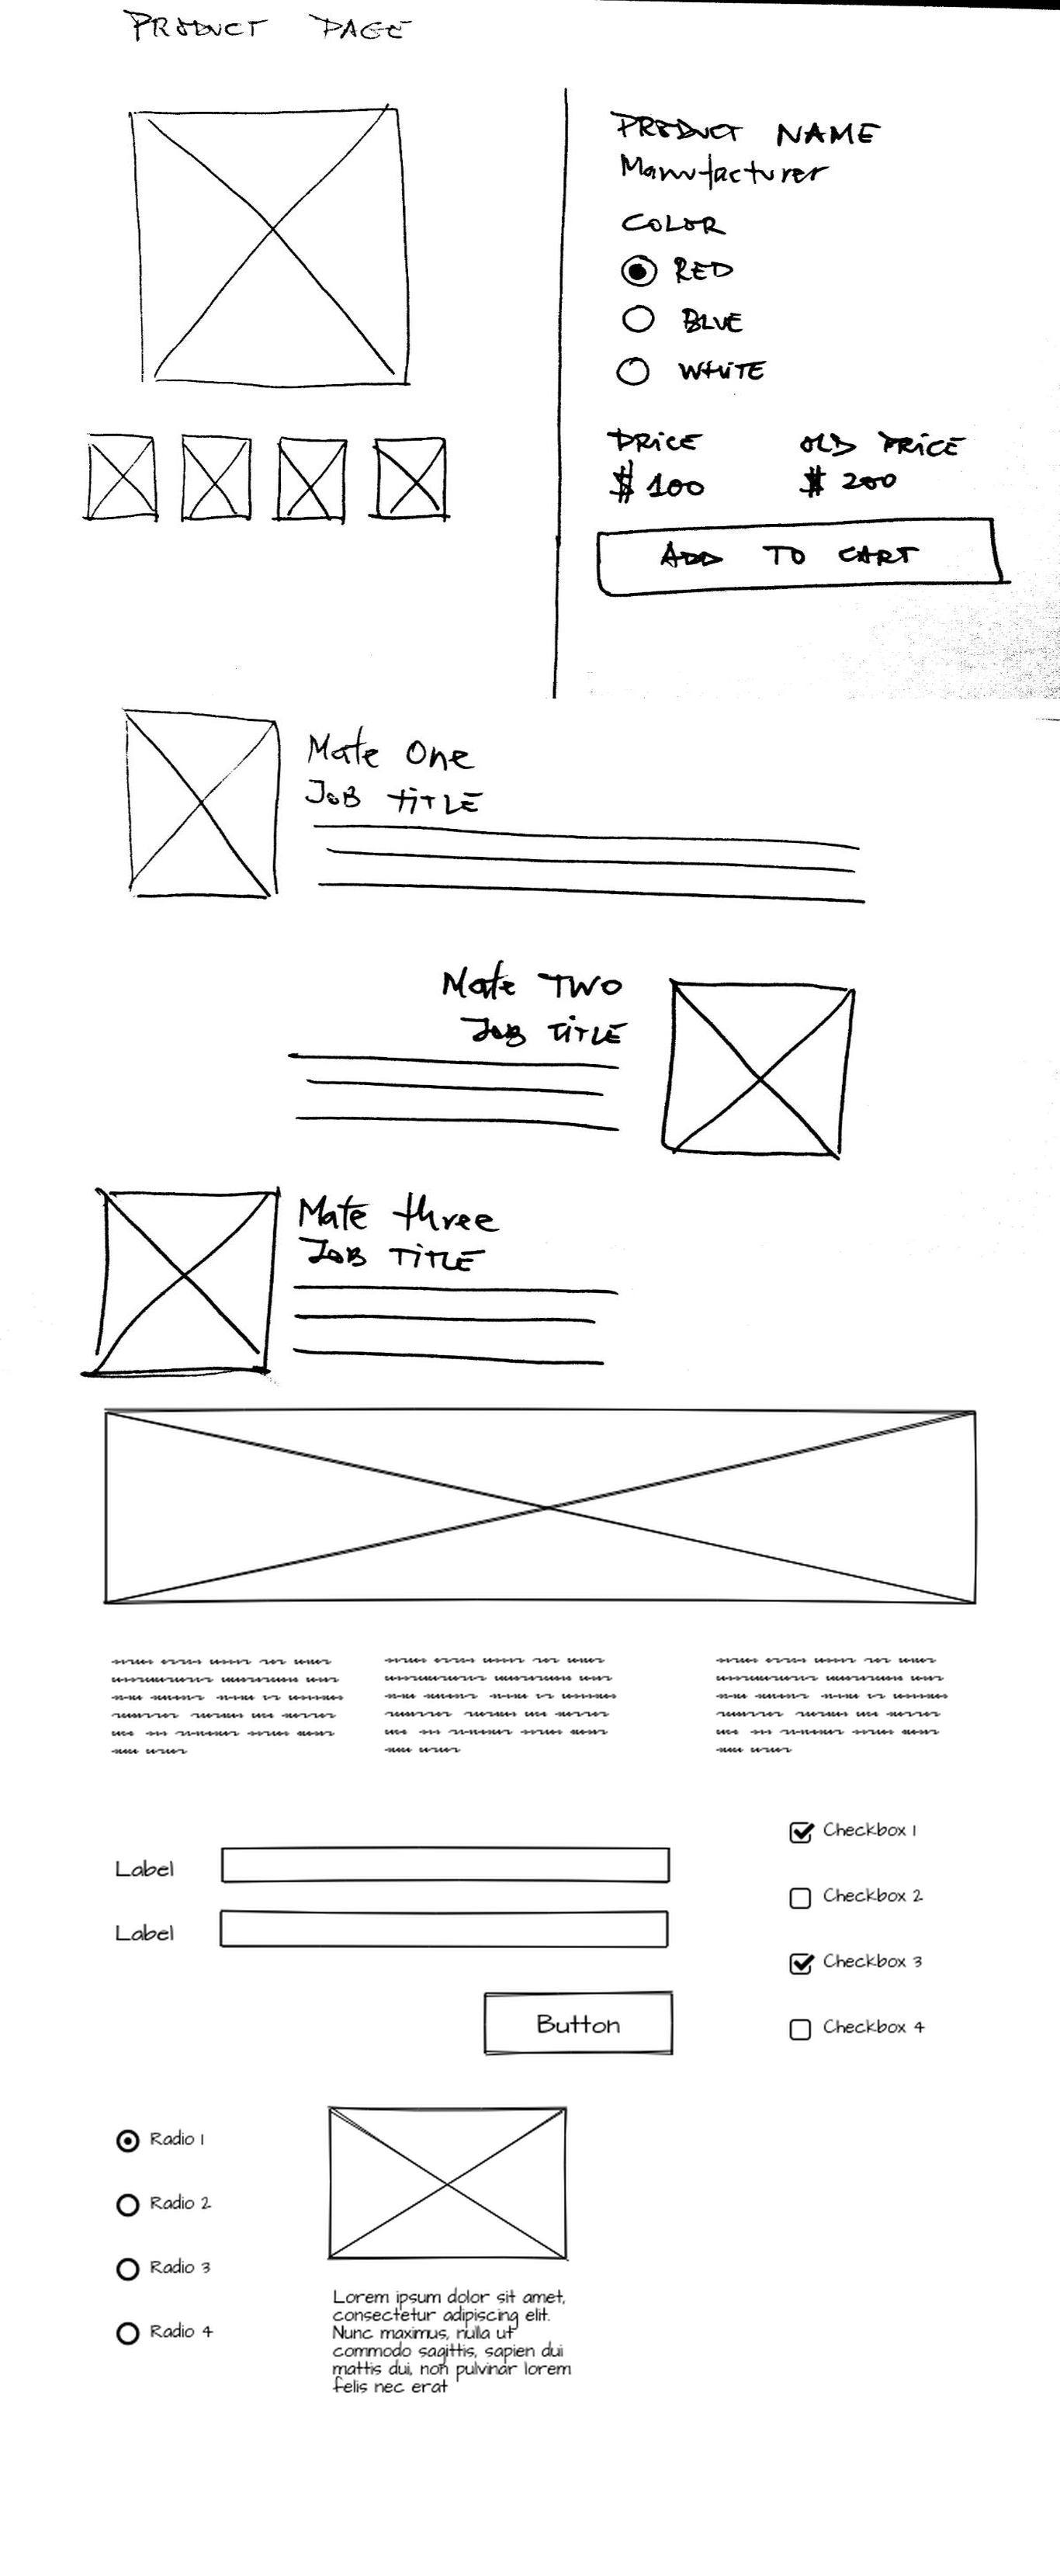 PRODUCT PAGE
PRODUCT NAME
Manufacturer
COLOR
RED
BLUE
WHITE
PRICE OLD PRICE
$ 100 $ 200
ADD TO CART
Mate One
JOB TITLE
Mate TWO
JOB TITLE
Mate three
JOB TITLE
Label
Label
Button
Checkbox 1
Checkbox 2
Checkbox 3
Checkbox 4
Radio 1
Radio 2
Radio 3
Radio 4
Lorem ipsum dolor sit amet,
consectetur adipiscing elit.
Nunc maximus, nulla ut
commodo sagittis, sapien dui
mattis dui, non pulvinar lorem
felis nec erat